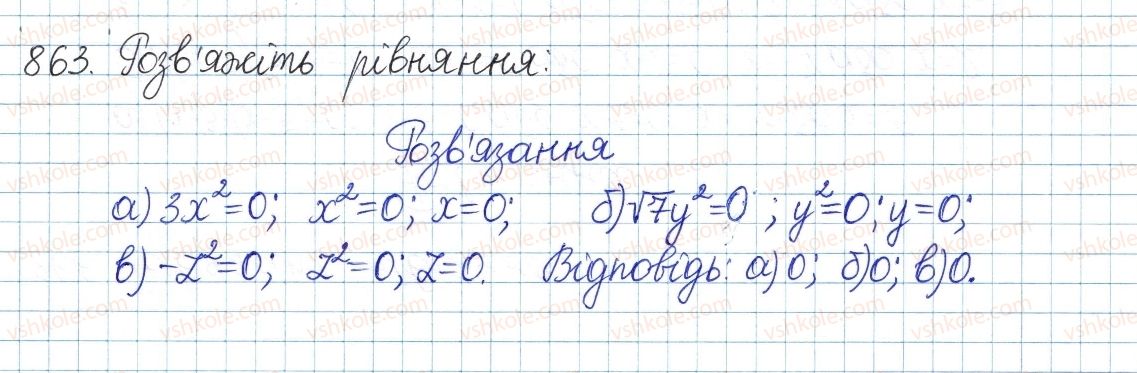 863. Розв'яжіть рівняння:
Розв'язання
а) 3x²=0; x²=0; x=0; б) √7y²=0 ; y²=0; y=0;
в) -z²=0; z²=0; z=0. Відповідь: а) 0; б) 0; в) 0.